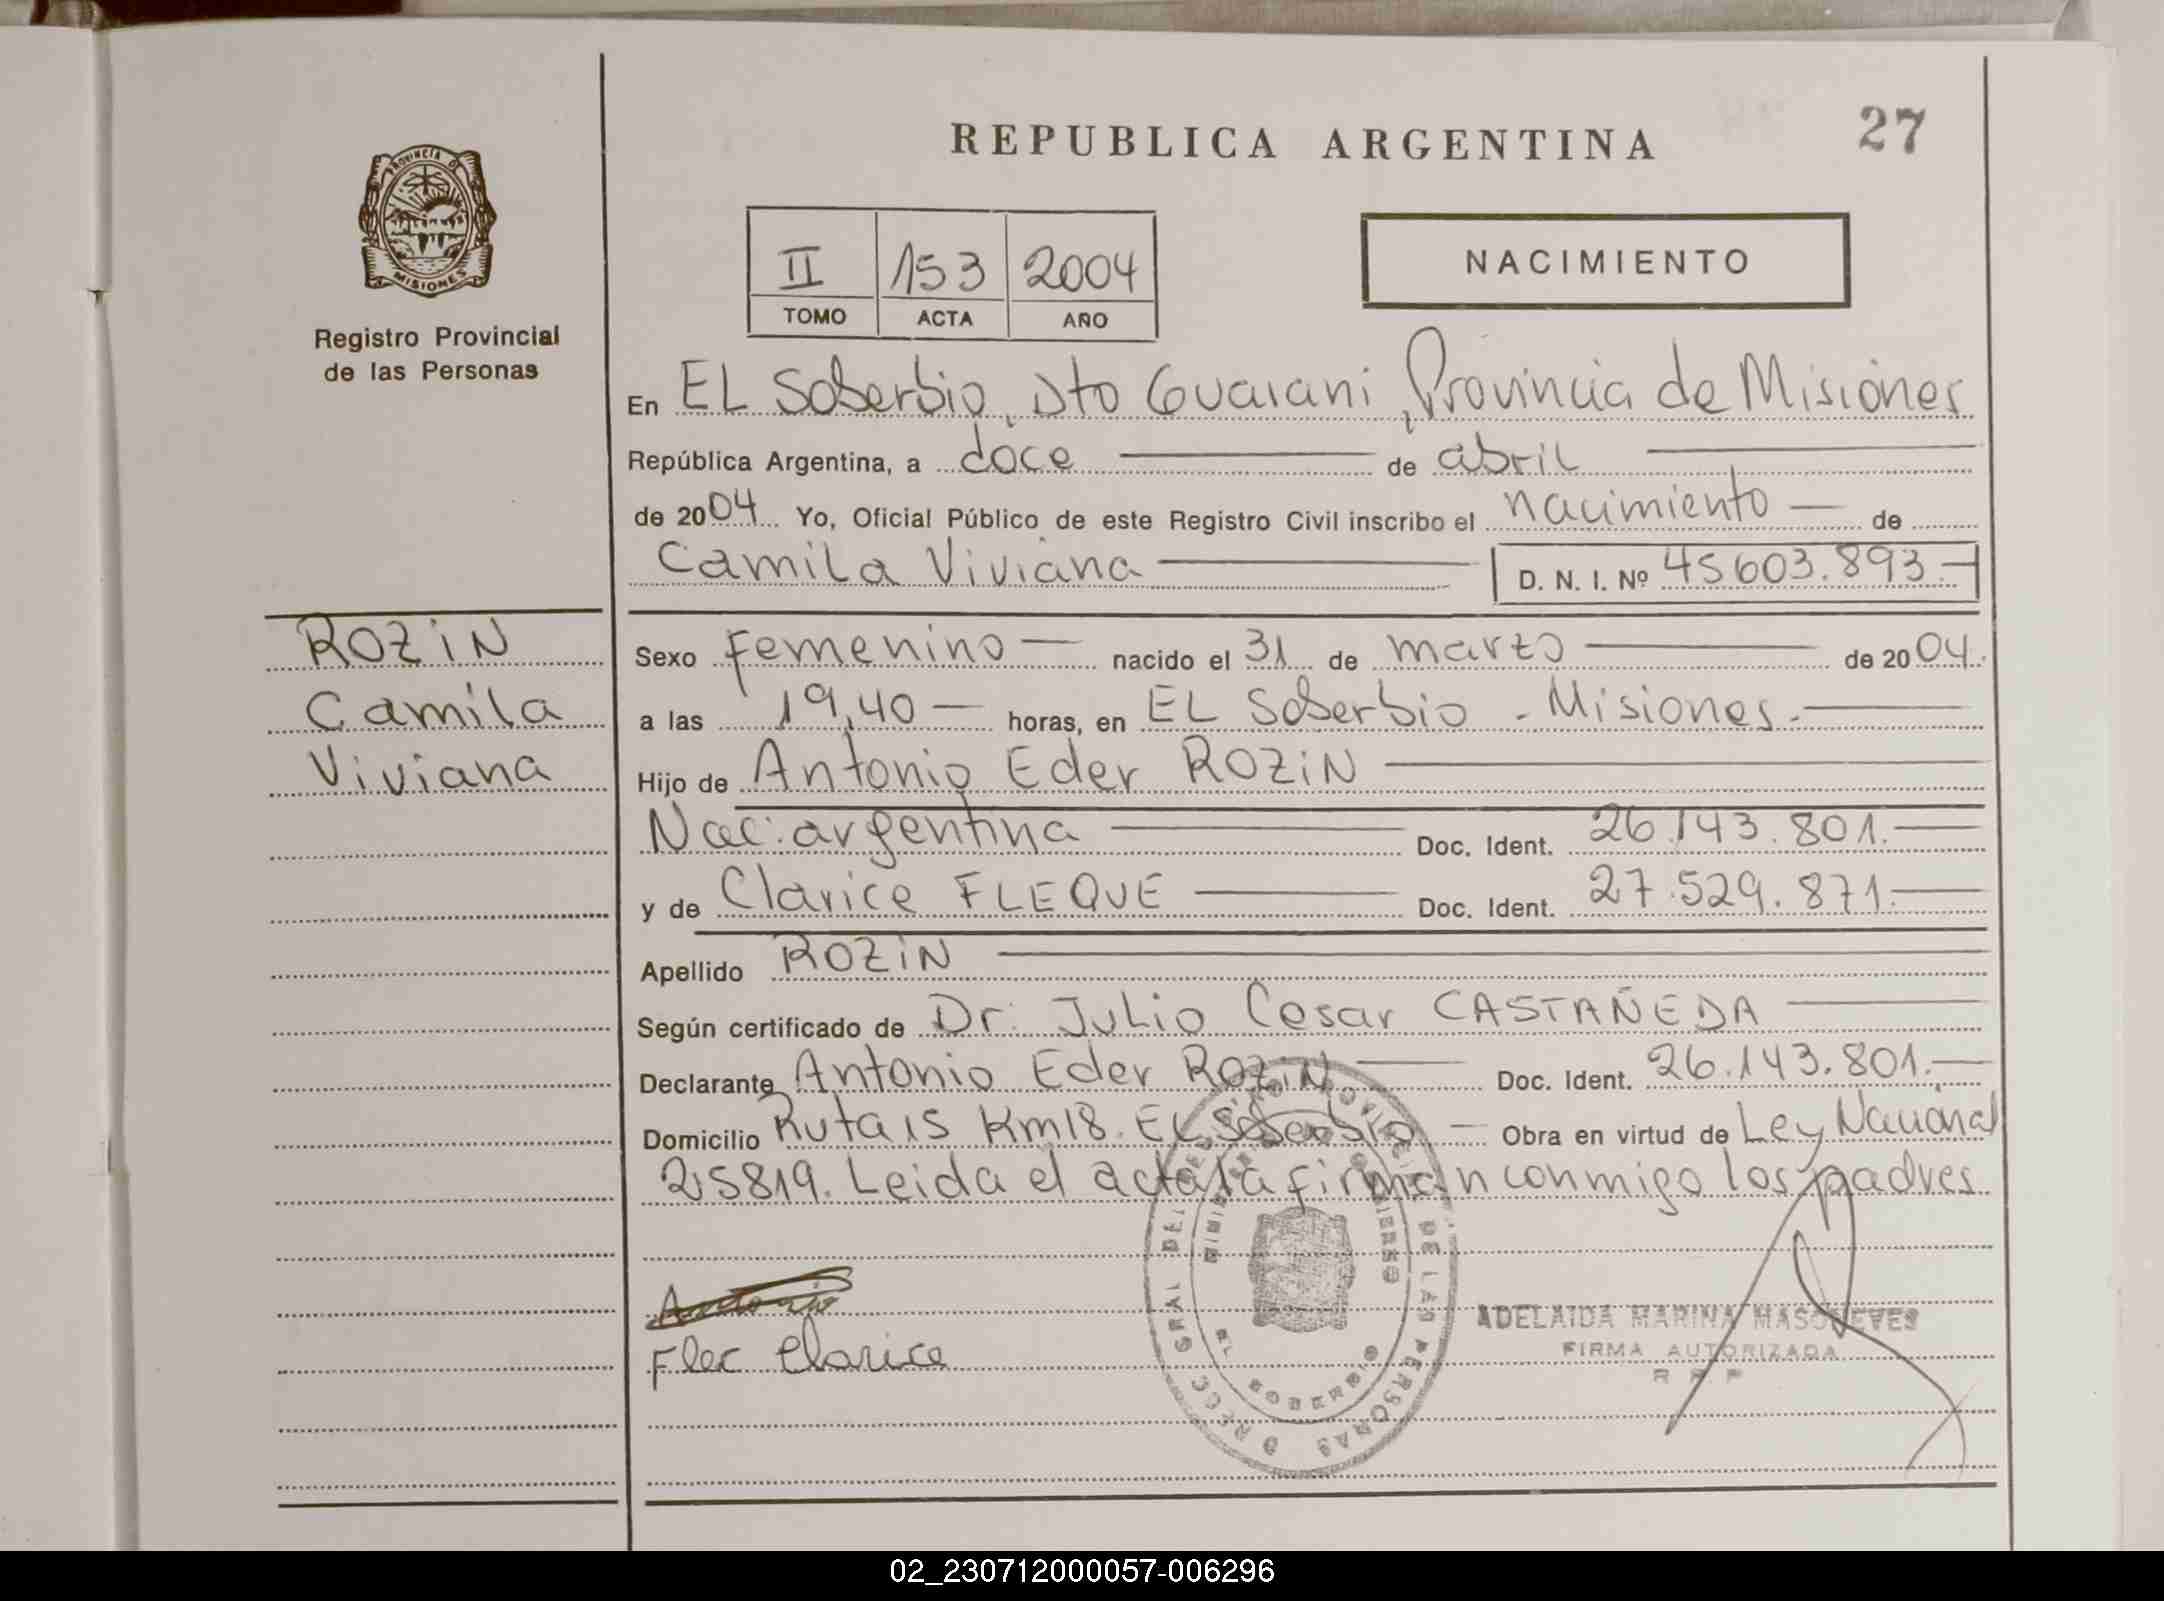 27
REPUBLICA ARGENTINA
PROVINCIA DE MISIONES
Registro Provincial
de las Personas
II 153 2004
TOMO ACTA AÑO
NACIMIENTO
En EL Soberbio, Dto Guarani, Provincia de Misiones
República Argentina, a doce de abril
de 2004 Yo, Oficial Público de este Registro Civil inscribo el nacimiento de
Camila Viviana D. N. I. Nº 45603.893
ROZIN
Camila
Viviana
Sexo Femenino nacido el 31 de marzo de 2004
a las 19,40 horas, en EL Soberbio - Misiones.
Hijo de Antonio Eder ROZIN
Nac: argentina Doc. Ident. 26.143.801.
y de Clarice FLEQUE Doc. Ident. 27.529.871.
Apellido ROZIN
Según certificado de Dr. Julio Cesar CASTAÑEDA
Declarante Antonio Eder ROZIN Doc. Ident. 26.143.801.
Domicilio Ruta 15 Km18. EL Soberbio Obra en virtud de Ley Nacional
25819. Leida el acta la firman conmigo los padres
Antonio
Flec Clarice
DIRECC GRAL DEL REGISTRO PROVINCIAL DE LAS PERSONAS
EL SOBERBIO
ADELAIDA MARINA
FIRMA AUTORIZADA
R R P
02_230712000057-006296